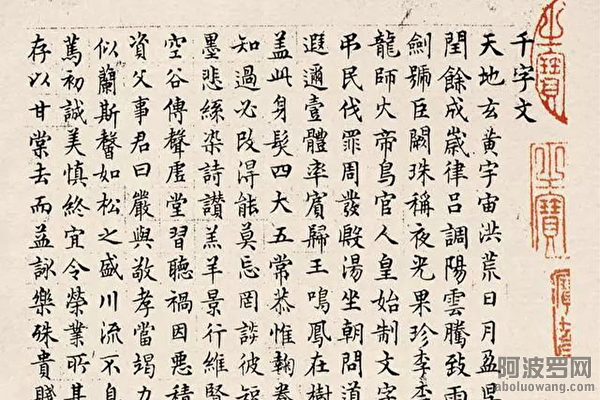 千字文
天地玄黃宇宙洪荒日月盈昃
閏餘成歲律呂調陽雲騰致雨
劍號巨闕珠稱夜光果珍李
龍師火帝鳥官人皇始制文字
弔民伐罪周發殷湯坐朝問道
遐邇壹體率賓歸王鳴鳳在樹
盖此身髮四大五常恭惟鞠養
知過必改得能莫忘罔談彼短
墨悲絲染詩讚羔羊景行維賢
空谷傳聲虛堂習聽禍因惡積
資父事君曰嚴與敬孝當竭力
似蘭斯馨如松之盛川流不息
篤初誠美慎終宜令榮業所基
存以甘棠去而益詠樂殊貴賤
阿波罗网
aboluowang.com